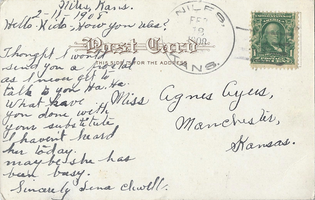 Niles, Kans.
2-18-1908
Hello Kido - How you was?
Thought I would
send you a postal
as I never get to
talk to you Ha. Ha.
What have
you done with
your substitute
I haven't heard
her today.
maybe she has
been busy.
Sincerely Lena
Post Card
THIS SIDE IS FOR THE ADDRESS
NILES,
FEB
18
1908
KANS.
Miss Agnes Ayers,
Manchester,
Kansas.